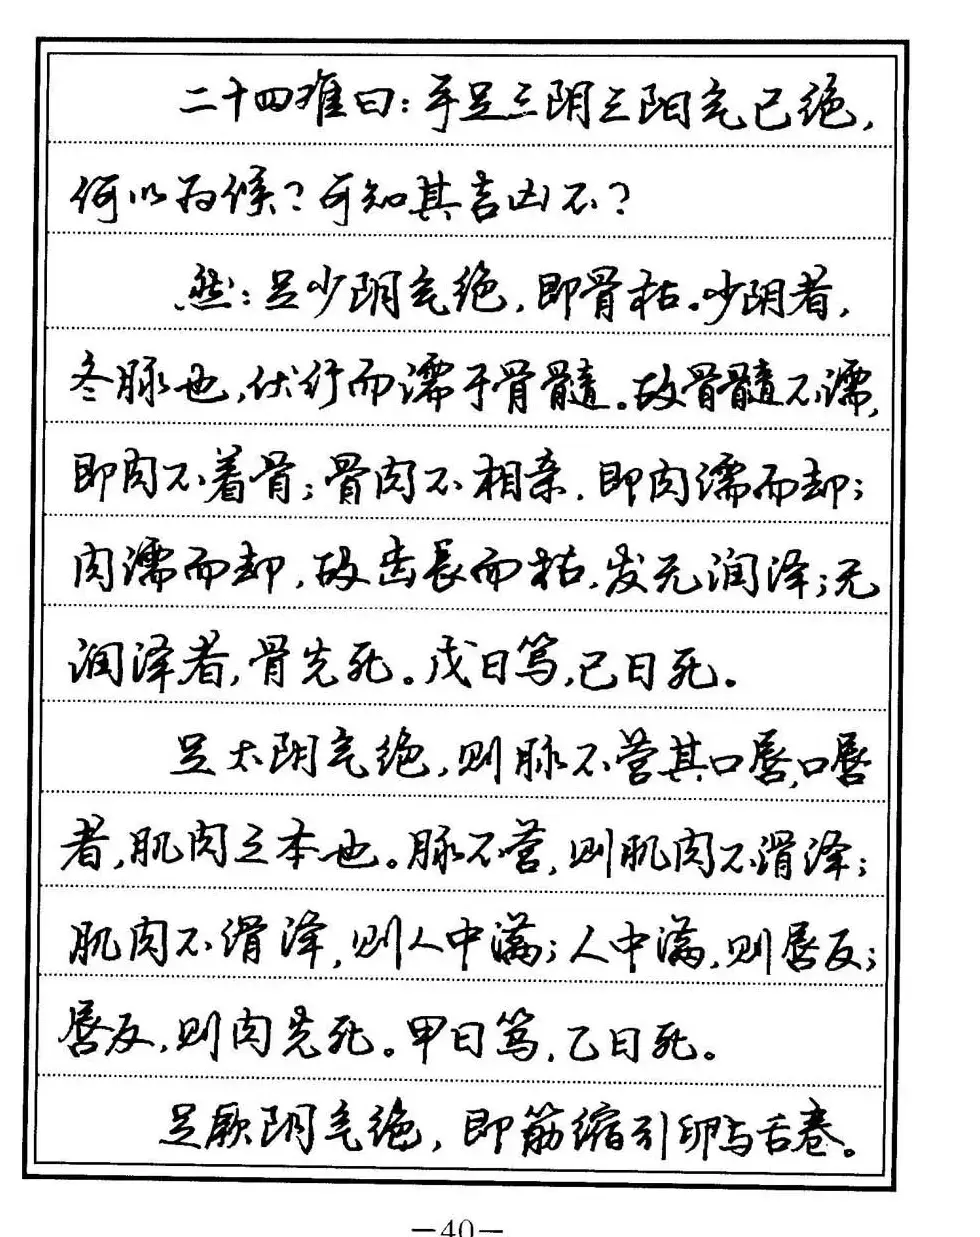 二十四难曰：手足三阴三阳气已绝，
何以为候？可知其吉凶不？
然：足少阴气绝，即骨枯。少阴者，
冬脉也，伏行而濡于骨髓。故骨髓不濡，
即肉不着骨；骨肉不相亲，即肉濡而却；
肉濡而却，故齿长而枯，发无润泽；无
润泽者，骨先死。戊日笃，己日死。
足太阴气绝，则脉不营其口唇，口唇
者，肌肉之本也。脉不营，则肌肉不滑泽；
肌肉不滑泽，则人中满；人中满，则唇反；
唇反，则肉先死。甲日笃，乙日死。
足厥阴气绝，即筋缩引卵与舌卷。
—40—